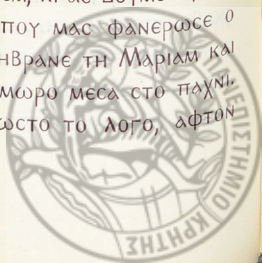 που μας φανερωσε ο
ηβρανε τη Μαριαμ και
μωρο μεσα στο παχνι.
ωστο το λογο, αφτον
ΕΠΙΣΤΗΜΙΟ ΚΡΗΤΗΣ